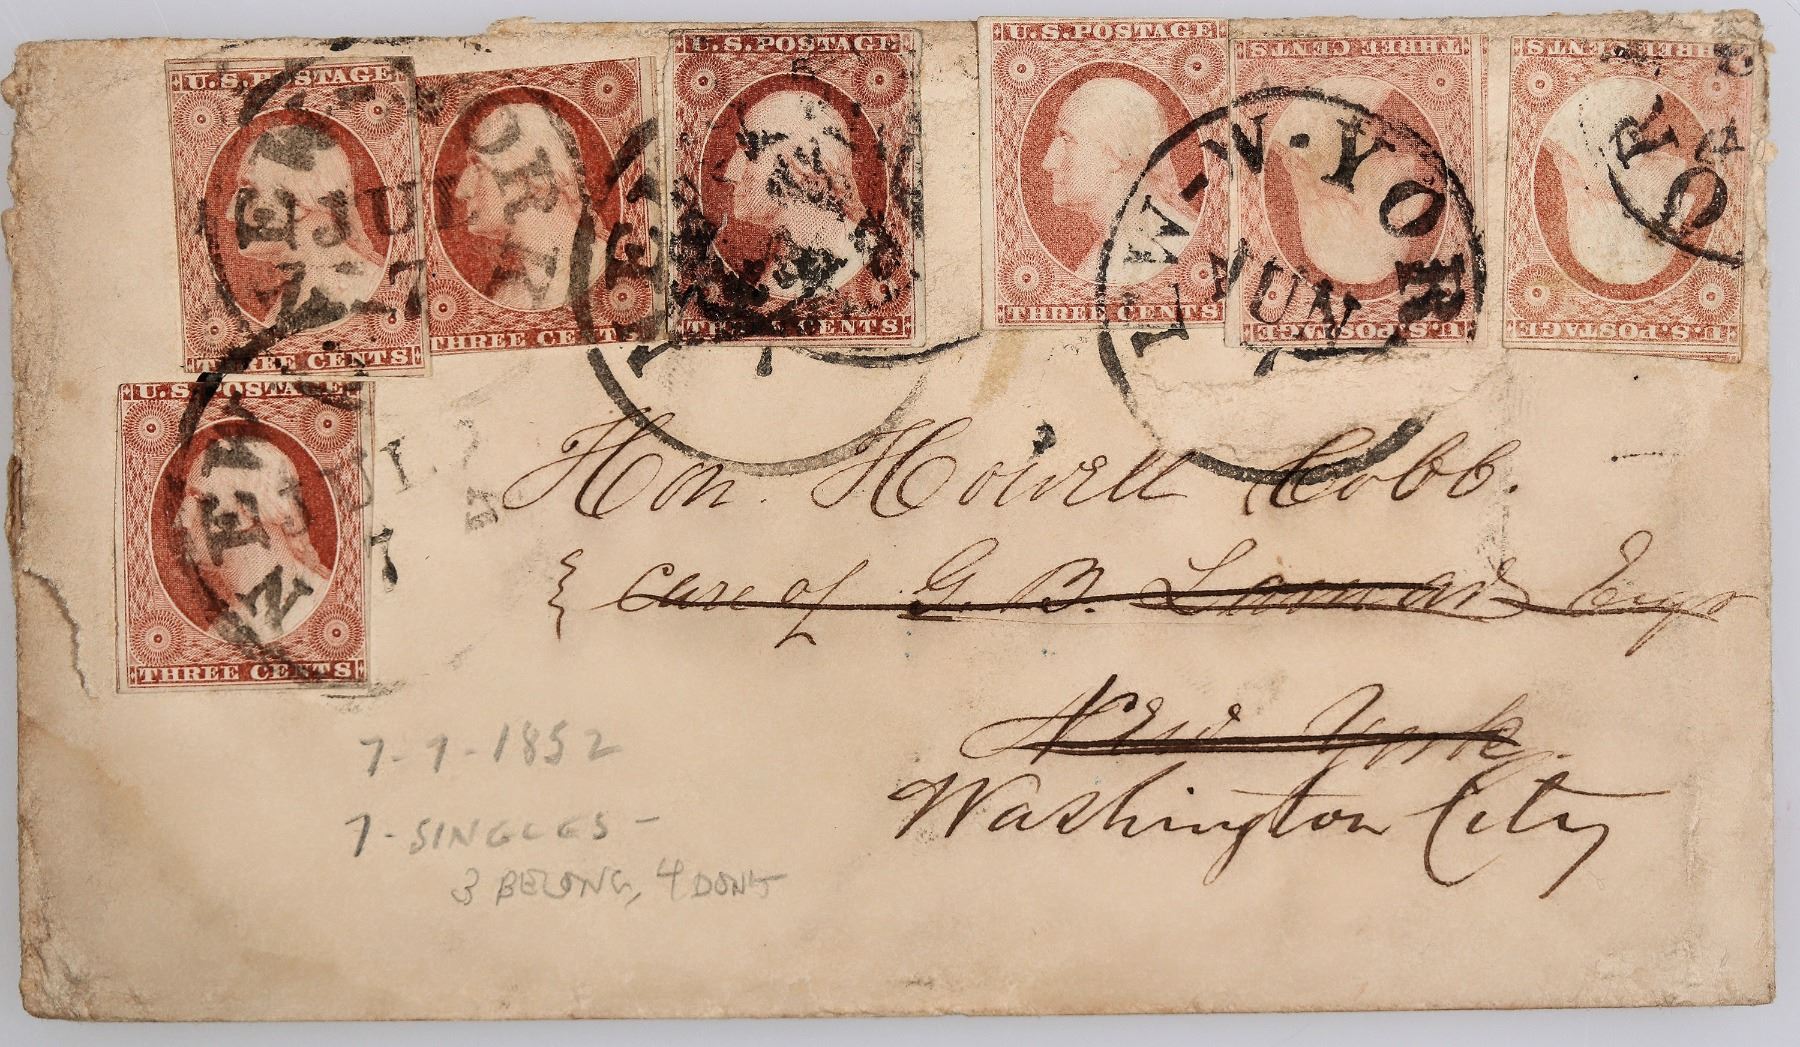 U.S. POSTAGE
THREE CENTS
THREE CENTS
U.S. POSTAGE
THREE CENTS
U.S. POSTAGE
THREE CENTS
THREE CENTS
U.S. POSTAGE
THREE CENTS
U.S. POSTAGE
U.S. POSTAGE
THREE CENTS
NEW YORK
JUL
7
NEW
JUL
7
NEW-YOR
JUN
YOR
Hon. Howell Cobb.
care of G. B. Lamar Esqr
New York.
Washington City
7-7-1852
7-SINGLES-
3 BELONG, 4 DONT